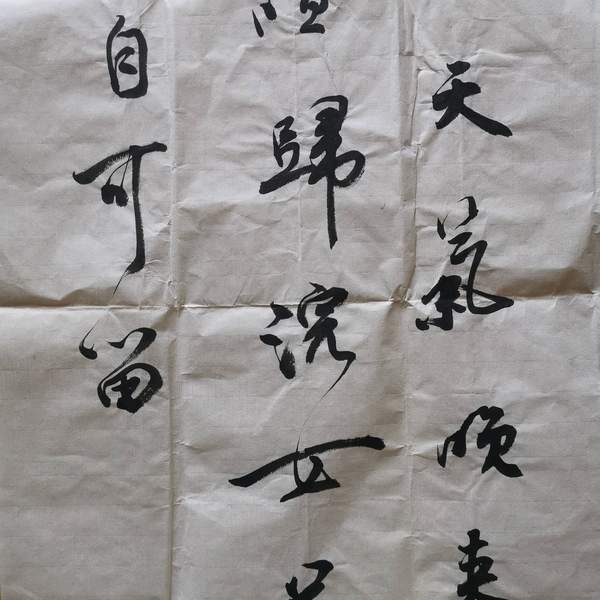 天氣晚來
喧歸浣女
自可留